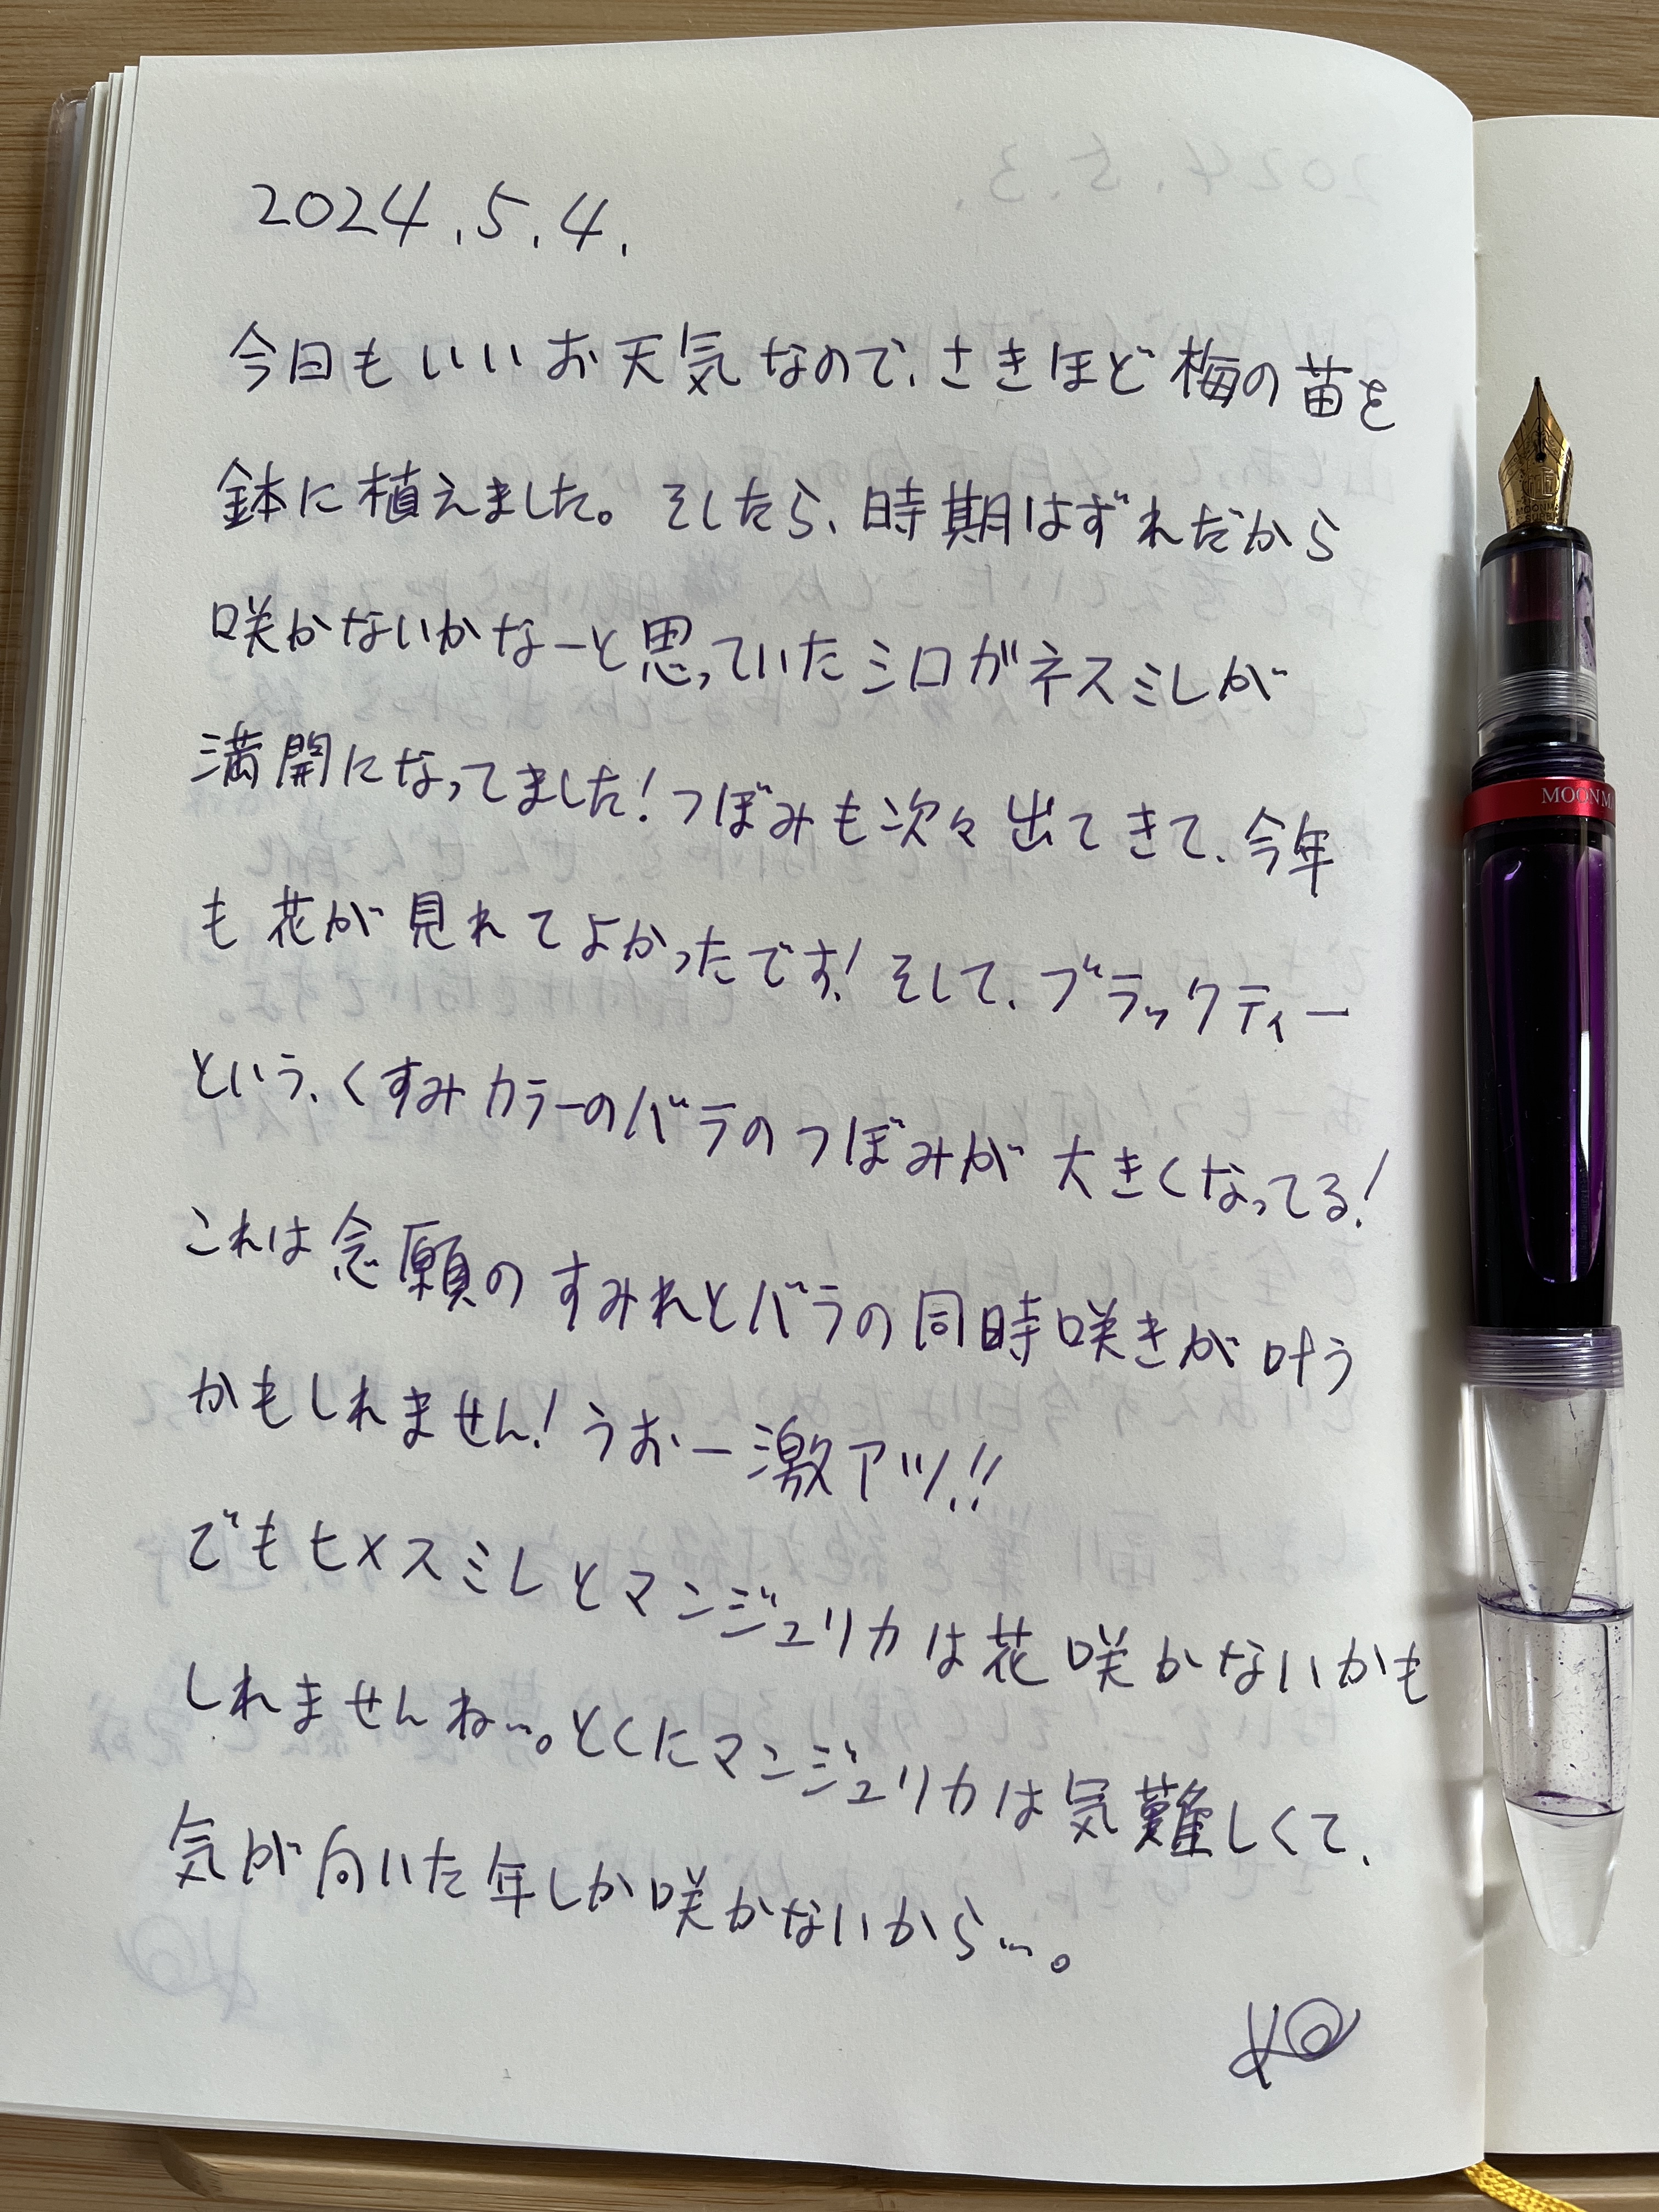 2024.5.4.
今日もいいお天気なので、さきほど梅の苗を
鉢に植えました。そしたら、時期はずれだから
咲かないかなーと思っていたシロガネスミレが
満開になってました！つぼみも次々出てきて、今年
も花が見れてよかったです！そして、ブラックティー
という、くすみカラーのバラのつぼみが大きくなってる！
これは念願のすみれとバラの同時咲きが叶う
かもしれません！うおー激アツ!!
でもヒメスミレとマンジュリカは花咲かないかも
しれませんね…。とくにマンジュリカは気難しくて、
気が向いた年しか咲かないから…。
MOONM